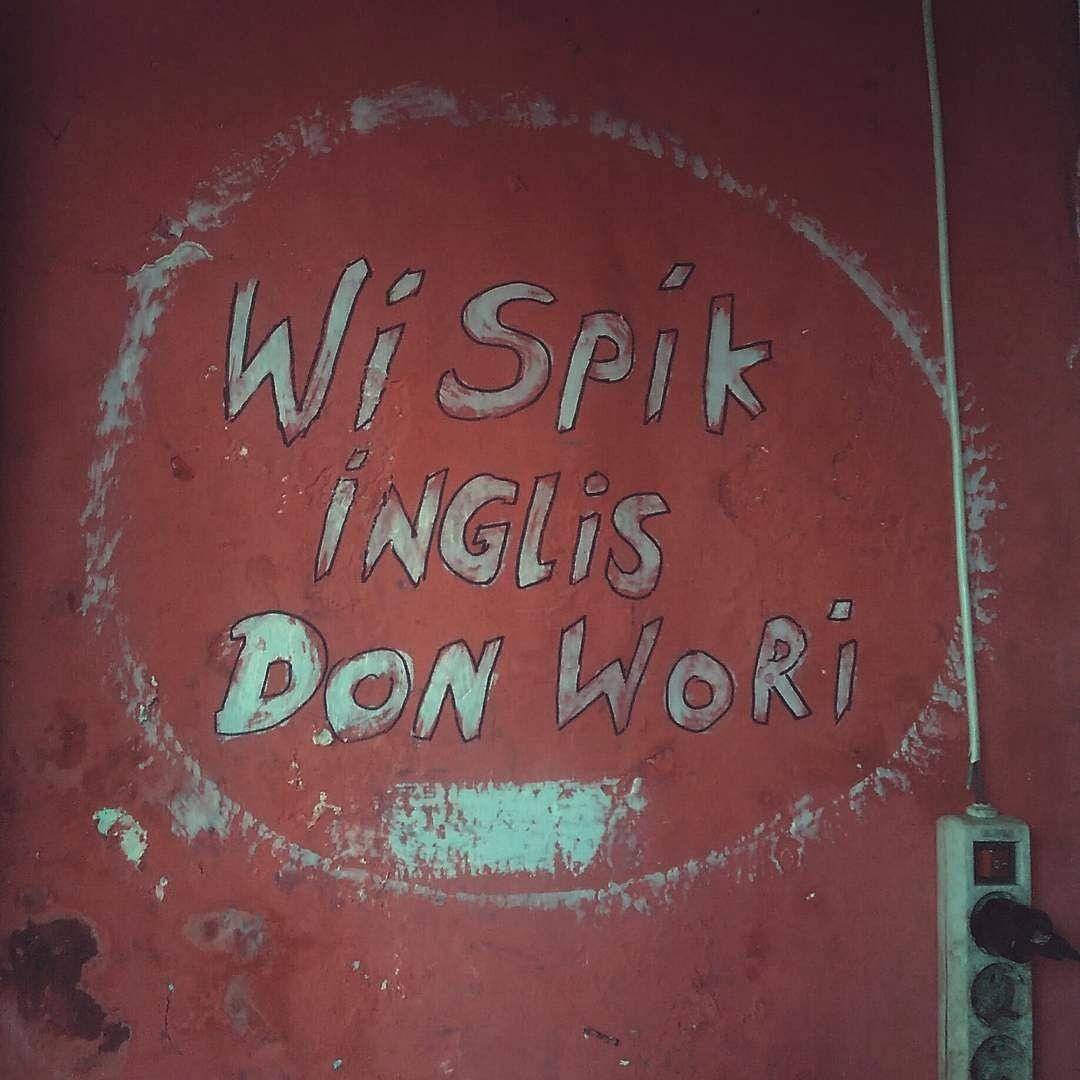 Wi Spik
iNGLis
DON WORi